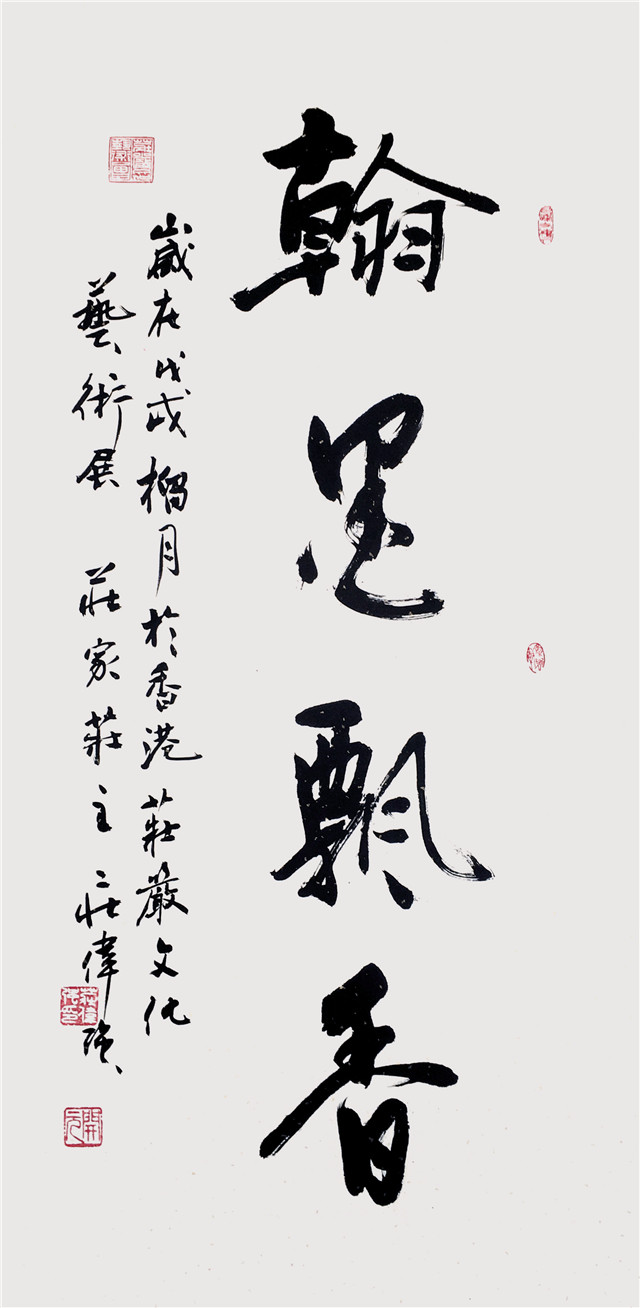 翰墨飄香
歲在戊戌榴月於香港莊嚴文化
藝術展 莊家莊主 莊偉
開元